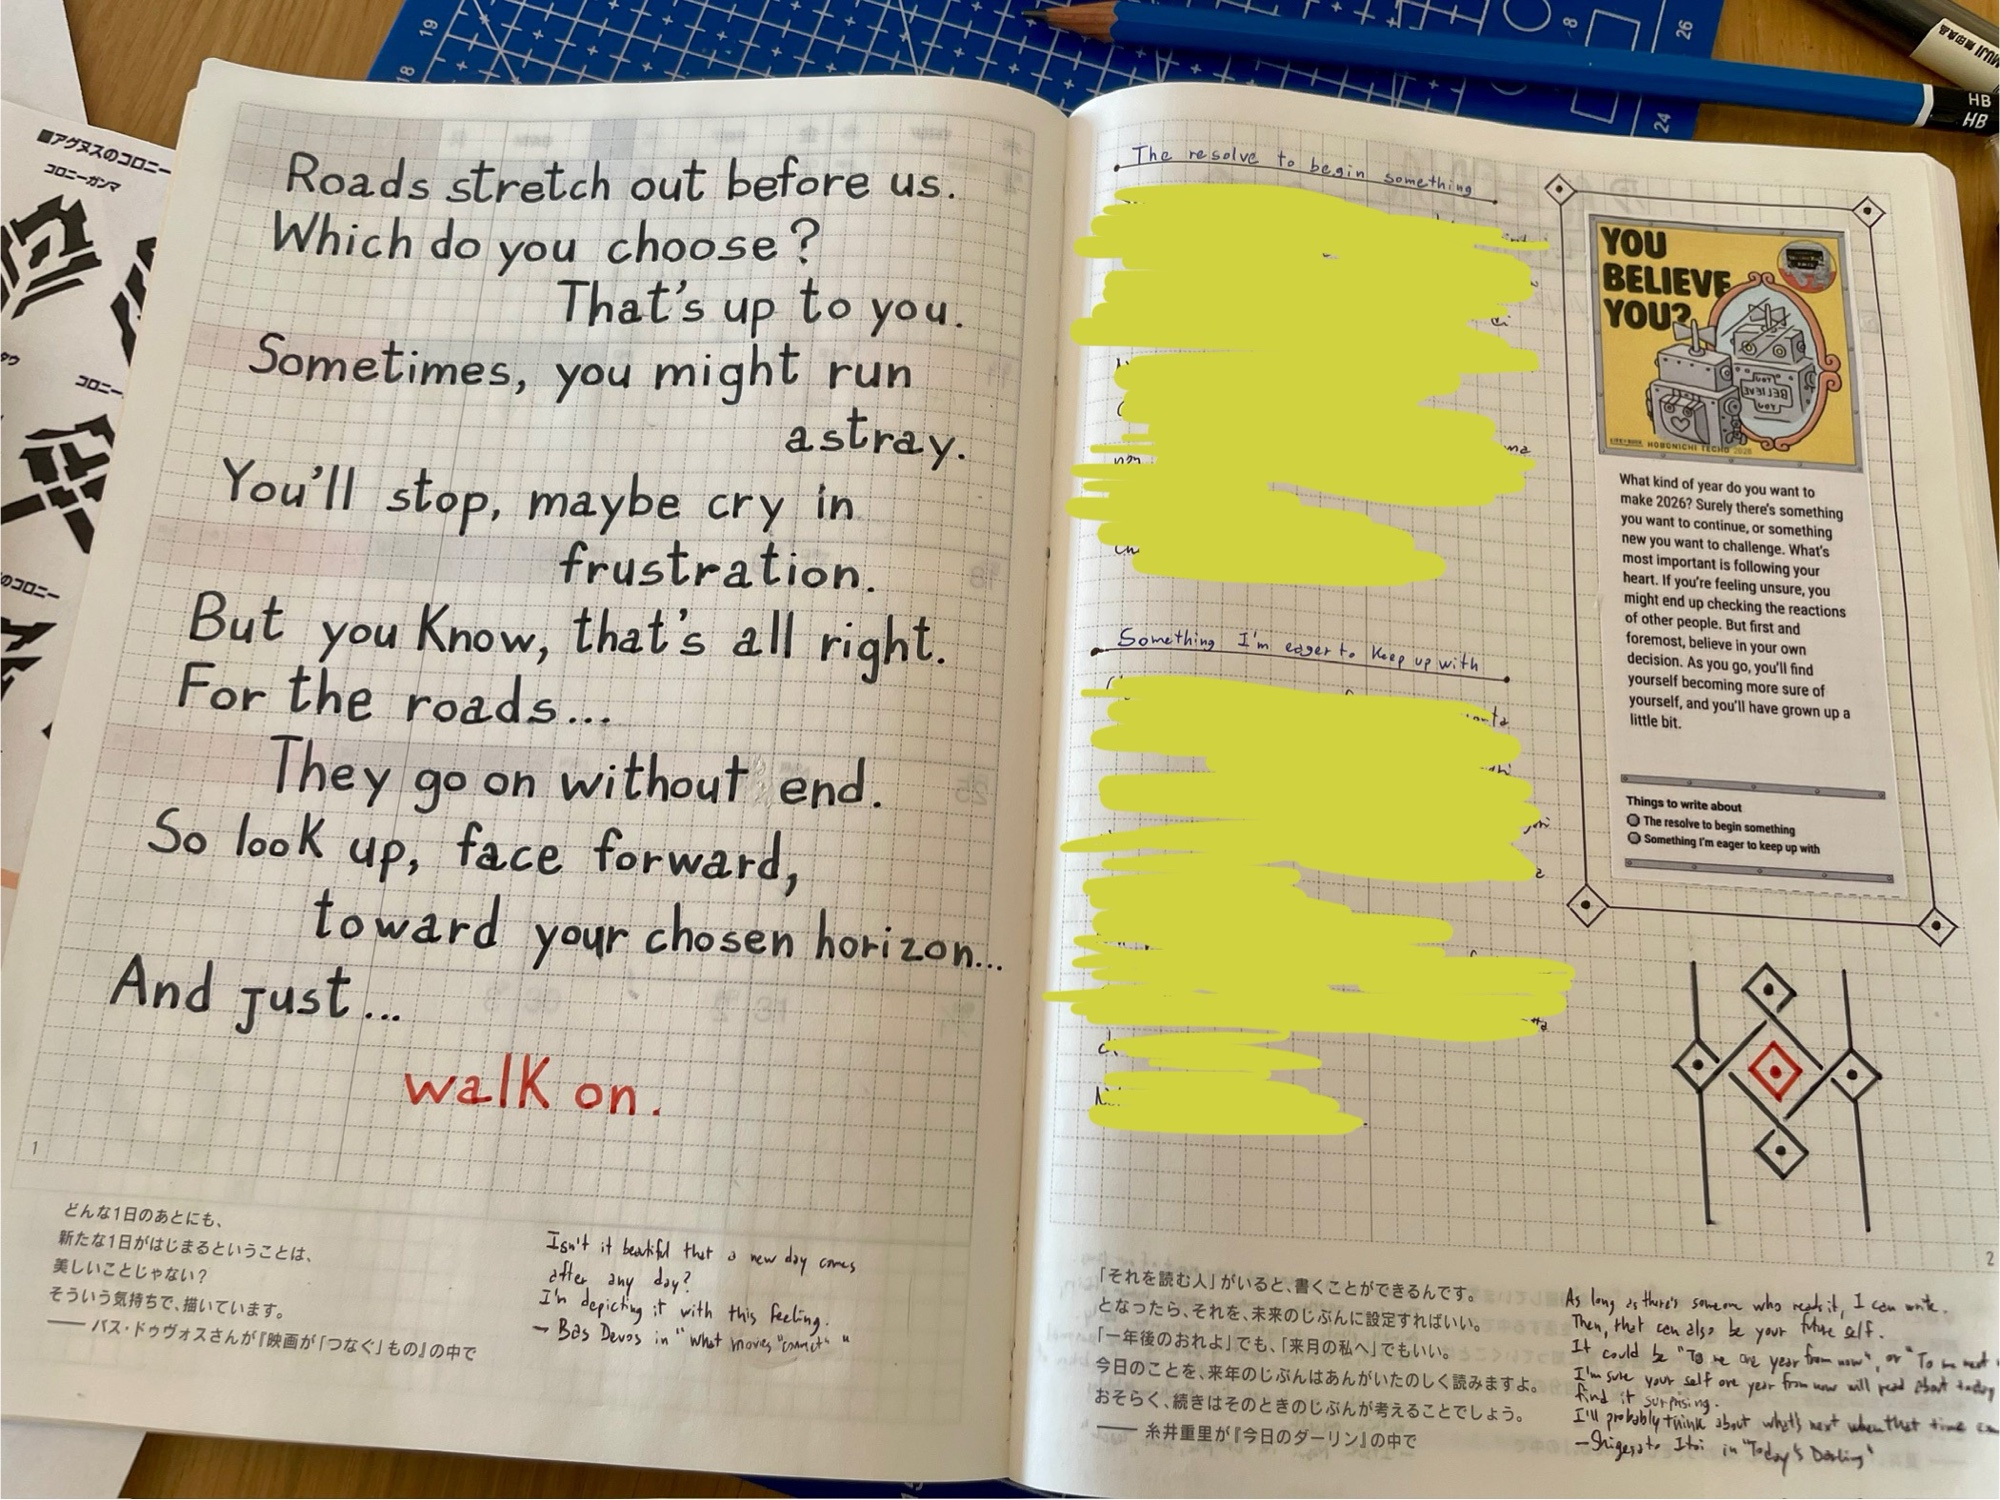 Roads stretch out before us.
Which do you choose?
That's up to you.
Sometimes, you might run
astray.
You'll stop, maybe cry in
frustration.
But you know, that's all right.
For the roads...
They go on without end.
So look up, face forward,
toward your chosen horizon...
And just...
walk on.
1
どんな1日のあとにも、
新たな1日がはじまるということは、
美しいことじゃない?
そういう気持ちで、描いています。
—— バス・ドゥヴォスさんが『映画が「つなぐ」もの』の中で
Isn't it beatiful that a new day comes
after any day?
I'm depicting it with this feeling.
— Bas Devos in "What movies "connect" "
The resolve to begin something
Something I'm eager to keep up with
YOU
BELIEVE
YOU?
YOU
BELIEVE
YOU
HOBONICHI TECHO 2026
What kind of year do you want to
make 2026? Surely there's something
you want to continue, or something
new you want to challenge. What's
most important is following your
heart. If you're feeling unsure, you
might end up checking the reactions
of other people. But first and
foremost, believe in your own
decision. As you go, you'll find
yourself becoming more sure of
yourself, and you'll have grown up a
little bit.
Things to write about
The resolve to begin something
Something I'm eager to keep up with
2
「それを読む人」がいると、書くことができるんです。
となったら、それを、未来のじぶんに設定すればいい。
「一年後のおれよ」でも、「来月の私へ」でもいい。
今日のことを、来年のじぶんはあんがいたのしく読みますよ。
おそらく、続きはそのときのじぶんが考えることでしょう。
—— 糸井重里が『今日のダーリン』の中で
As long as there's someone who reads it, I can write.
Then, that can also be your future self.
It could be "To me one year from now", or "To me next
I'm sure your self one year from now will read about today
find it surprising.
I'll probably think about what's next when that time
— Shigesato Itoi in "Today's Darling"
■アグヌスのコロニー
コロニーガンマ
タウ
コロニー
のコロニー
19
18
8
26
24
HB
HB
MUJI 無印良品